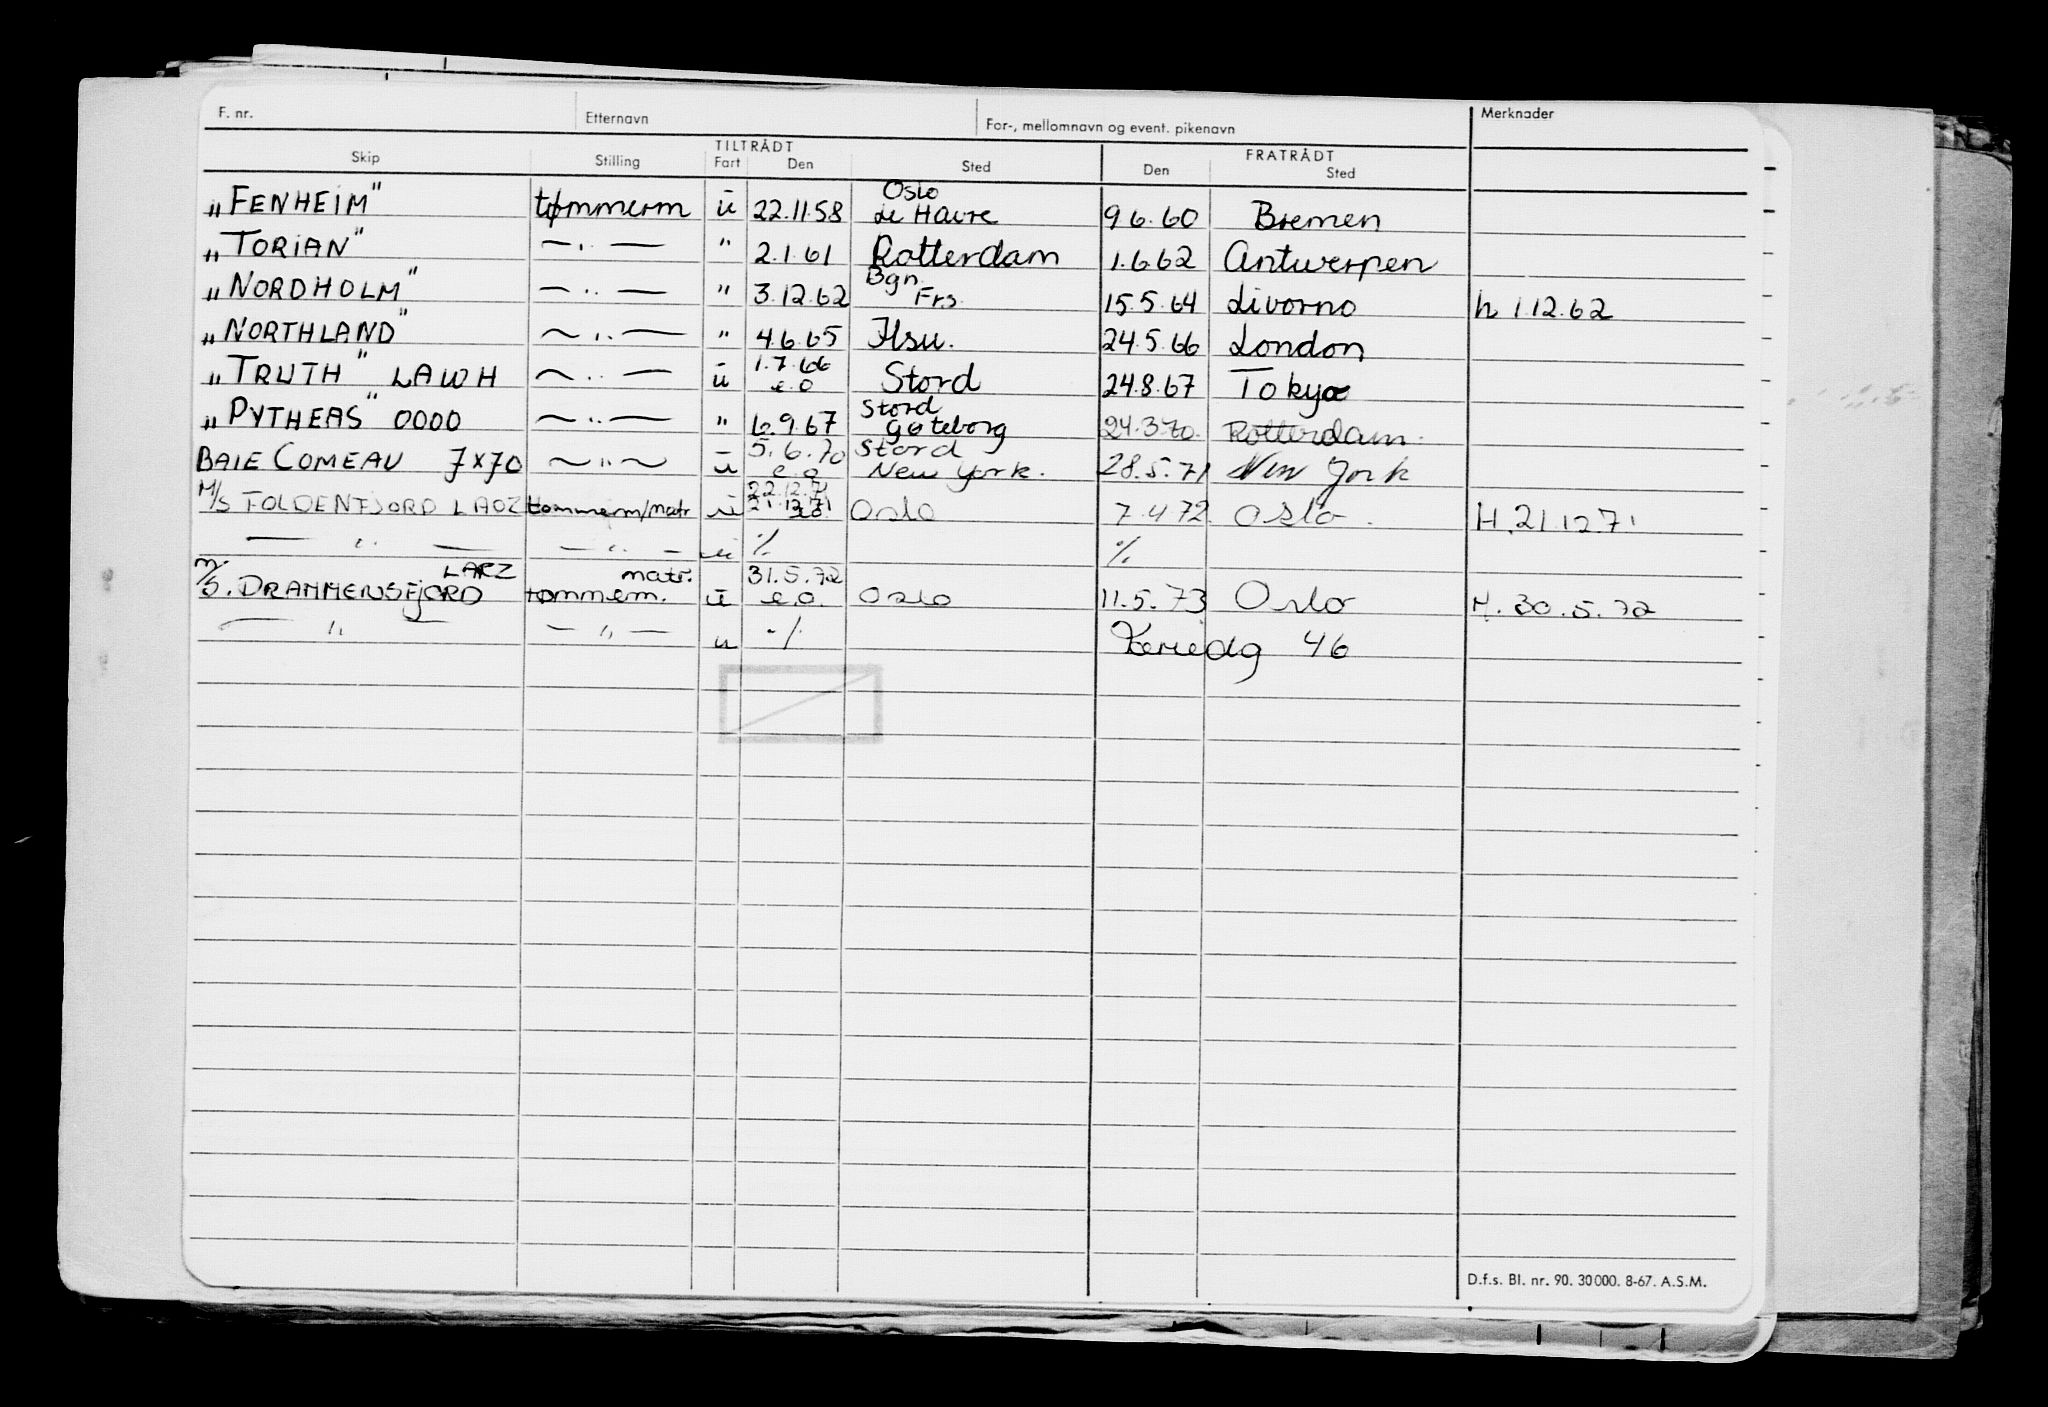 F. nr. Etternavn For-, mellomnavn og event. pikenavn Merknader
TILTRÅDT FRATRÅDT
Skip Stilling Fart Den Sted Den Sted
Oslo
„FENHEIM" tømmerm ü 22.11.58 Le Havre 9.6.60 Bremen
„TORIAN" —..— " 2.1.61 Rotterdam 1.6.62 Antwerpen
Bgn.
„NORDHOLM" —..— " 3.12.62 Frs. 15.5.64 Livorno h 1.12.62
„NORTHLAND" —..— " 4.6.65 Hsu. 24.5.66 London
1.7.66
„TRUTH" LAWH —..— ü e.o Stord 24.8.67 Tokyo
Stord
„PYTHEAS" OOOO —..— " 6.9.67 Gøteborg 24.3.70. Rotterdam.
5.6.70 Stord
BAIE COMEAU 7x70 —"— ü e.o New York. 28.5.71 New York
22.12.71
M/S TOLDENFJORD LAOZ tømmerm/matr ü 21.12.71 e.o. Oslo 7.4.72 Oslo. H.21.12.71
— " — — " — ü % %
LARZ matr. 31.5.72
m/S. DRAMMENSFJORD tømmerm. ü e.o. Oslo 11.5.73 Oslo H. 30.5.72
— " — — " — u ./. Feriedg 46
D.f.s. Bl. nr. 90. 30000. 8-67. A.S.M.